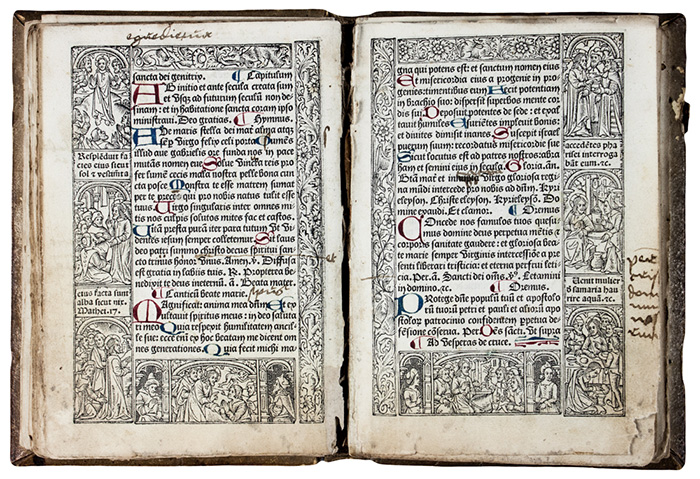 sancta dei genitrix. Capitulum
AB initio et ante secula creata sum
et vsq3 ad futurũ seculũ non de
sinam: et in habitatione sancta coram ipso
ministraui. Deo gratias. Hymnus.
AVe maris stella dei mať alma atq3
semp virgo felix celi porta. Sumẽs
illud aue gabrielis ore funda nos in pace
mutãs nomen eue. Solue vincťa reis pro
fer lumẽ cecis mala nostra pelle bona cun
cta posce. Monstra te esse matrem sumat
per te preces qui pro nobis natus tulit esse
tuus. Virgo singularis inter omnes mi
tis nos culpis solutos mites fac et castos.
Uitã presta purã iter para tutum vt vi
dentes iesum semper colletemur. Sit laus
deo patri summo christo decus spiritui san
cto trinus honor vnus. Amen. V. Diffusa
est gratia in labiis tuis. R. Propterea be
nedixit te deus ineternũ. añ. Beata mater.
Canticũ beate marie.
MAgnificat: anima mea dñm. Et ex
ultauit spiritus meus: in deo saluta
ri meo. Quia respexit humilitatem ancil
le sue: ecce eni ex hoc beatam me dicent om
nes generationes. Quia fecit michi ma
Resplẽduit fa
cies eius sicut
sol et vestimẽta
eius facta sunt
alba sicut nix.
Mathei. 17.
gna qui potens est: et sanctum nomen eius
Et misericordia eius a progenie in pro
genies: timentibus eum. Fecit potentiam
in brachio suo: dispersit superbos mente cor
dis sui. Deposuit potentes de sede: et exal
tauit humiles. Esuriẽtes impleuit bonis:
et diuites dimisit inanes. Suscepit israel
puerum suum: recordatus misericordie sue
Sicut locutus est ad patres nostros: abra
ham et semini eius in secula. Gloria. añ.
virgo gloriosa regi
na mũdi intercede pro nobis ad dñm. Kyri
eleyson. Christe eleyson. Kyrieleysõ. Domi
ne exaudi. Et clamor. Oremus.
COncede nos famulos tuos quesu
mus domine deus perpetua mẽtis et
corporis sanitate gaudere: et gloriosa bea
te marie semper Virginis intercessiõe a pre
senti liberari tristicia: et eterna perfrui leti
cia. Per. añ. Sancti dei oẽs. V. Letamini
in domino. 2c. Oremus.
PRotege dñe populũ tuũ et apostolo
rũ tuorũ petri et pauli et alioɤ apo
stoloɤ patrocinio confidentem ppetua de
fensiõe cõserua. Per. Oẽs sãcti. Vt supra
Ad vesperas de cruce.
accedẽtes pha
risei interroga
bãt eum. 2c.
Uenit mulier
samaria hau
rire aquã. 2c.